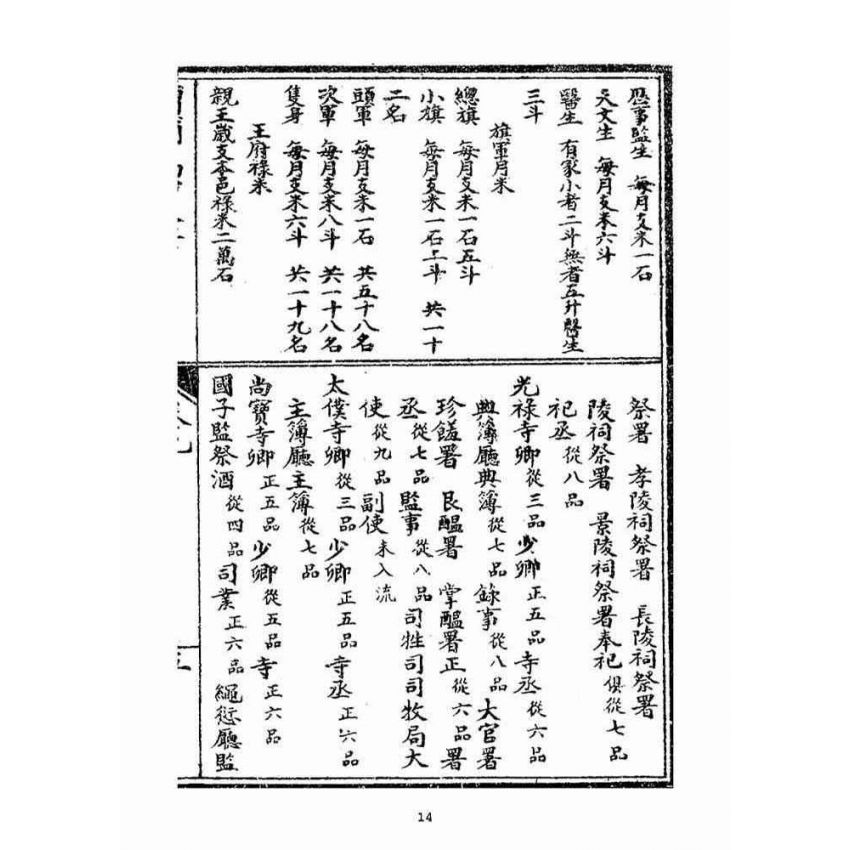 歷事監生 每月支米一石
天文生 每月支米六斗
醫生 有家小者二斗無者五升醫生
三斗
旗軍月米
總旗 每月支米一石五斗
小旗 每月支米一石二斗 共一十
二名
頭軍 每月支米一石 共五十八名
次軍 每月支米八斗 共一十八名
隻身 每月支米六斗 共一十九名
王府祿米
親王歲支本色祿米二萬石
祭署 孝陵祠祭署 長陵祠祭署
陵祠祭署 景陵祠祭署奉祀俱從七品
祀丞從八品
光祿寺卿從三品少卿正五品寺丞從六品
典簿廳典簿從七品錄事從八品大官署
珍饈署 良醞署 掌醞署正從六品署
丞從七品監事從八品司牲司司牧局大
使從九品副使未入流
太僕寺卿從三品少卿正五品寺丞正六品
主簿廳主簿從七品
尚寶寺卿正五品少卿從五品寺正六品
國子監祭酒從四品司業正六品繩愆廳監
14